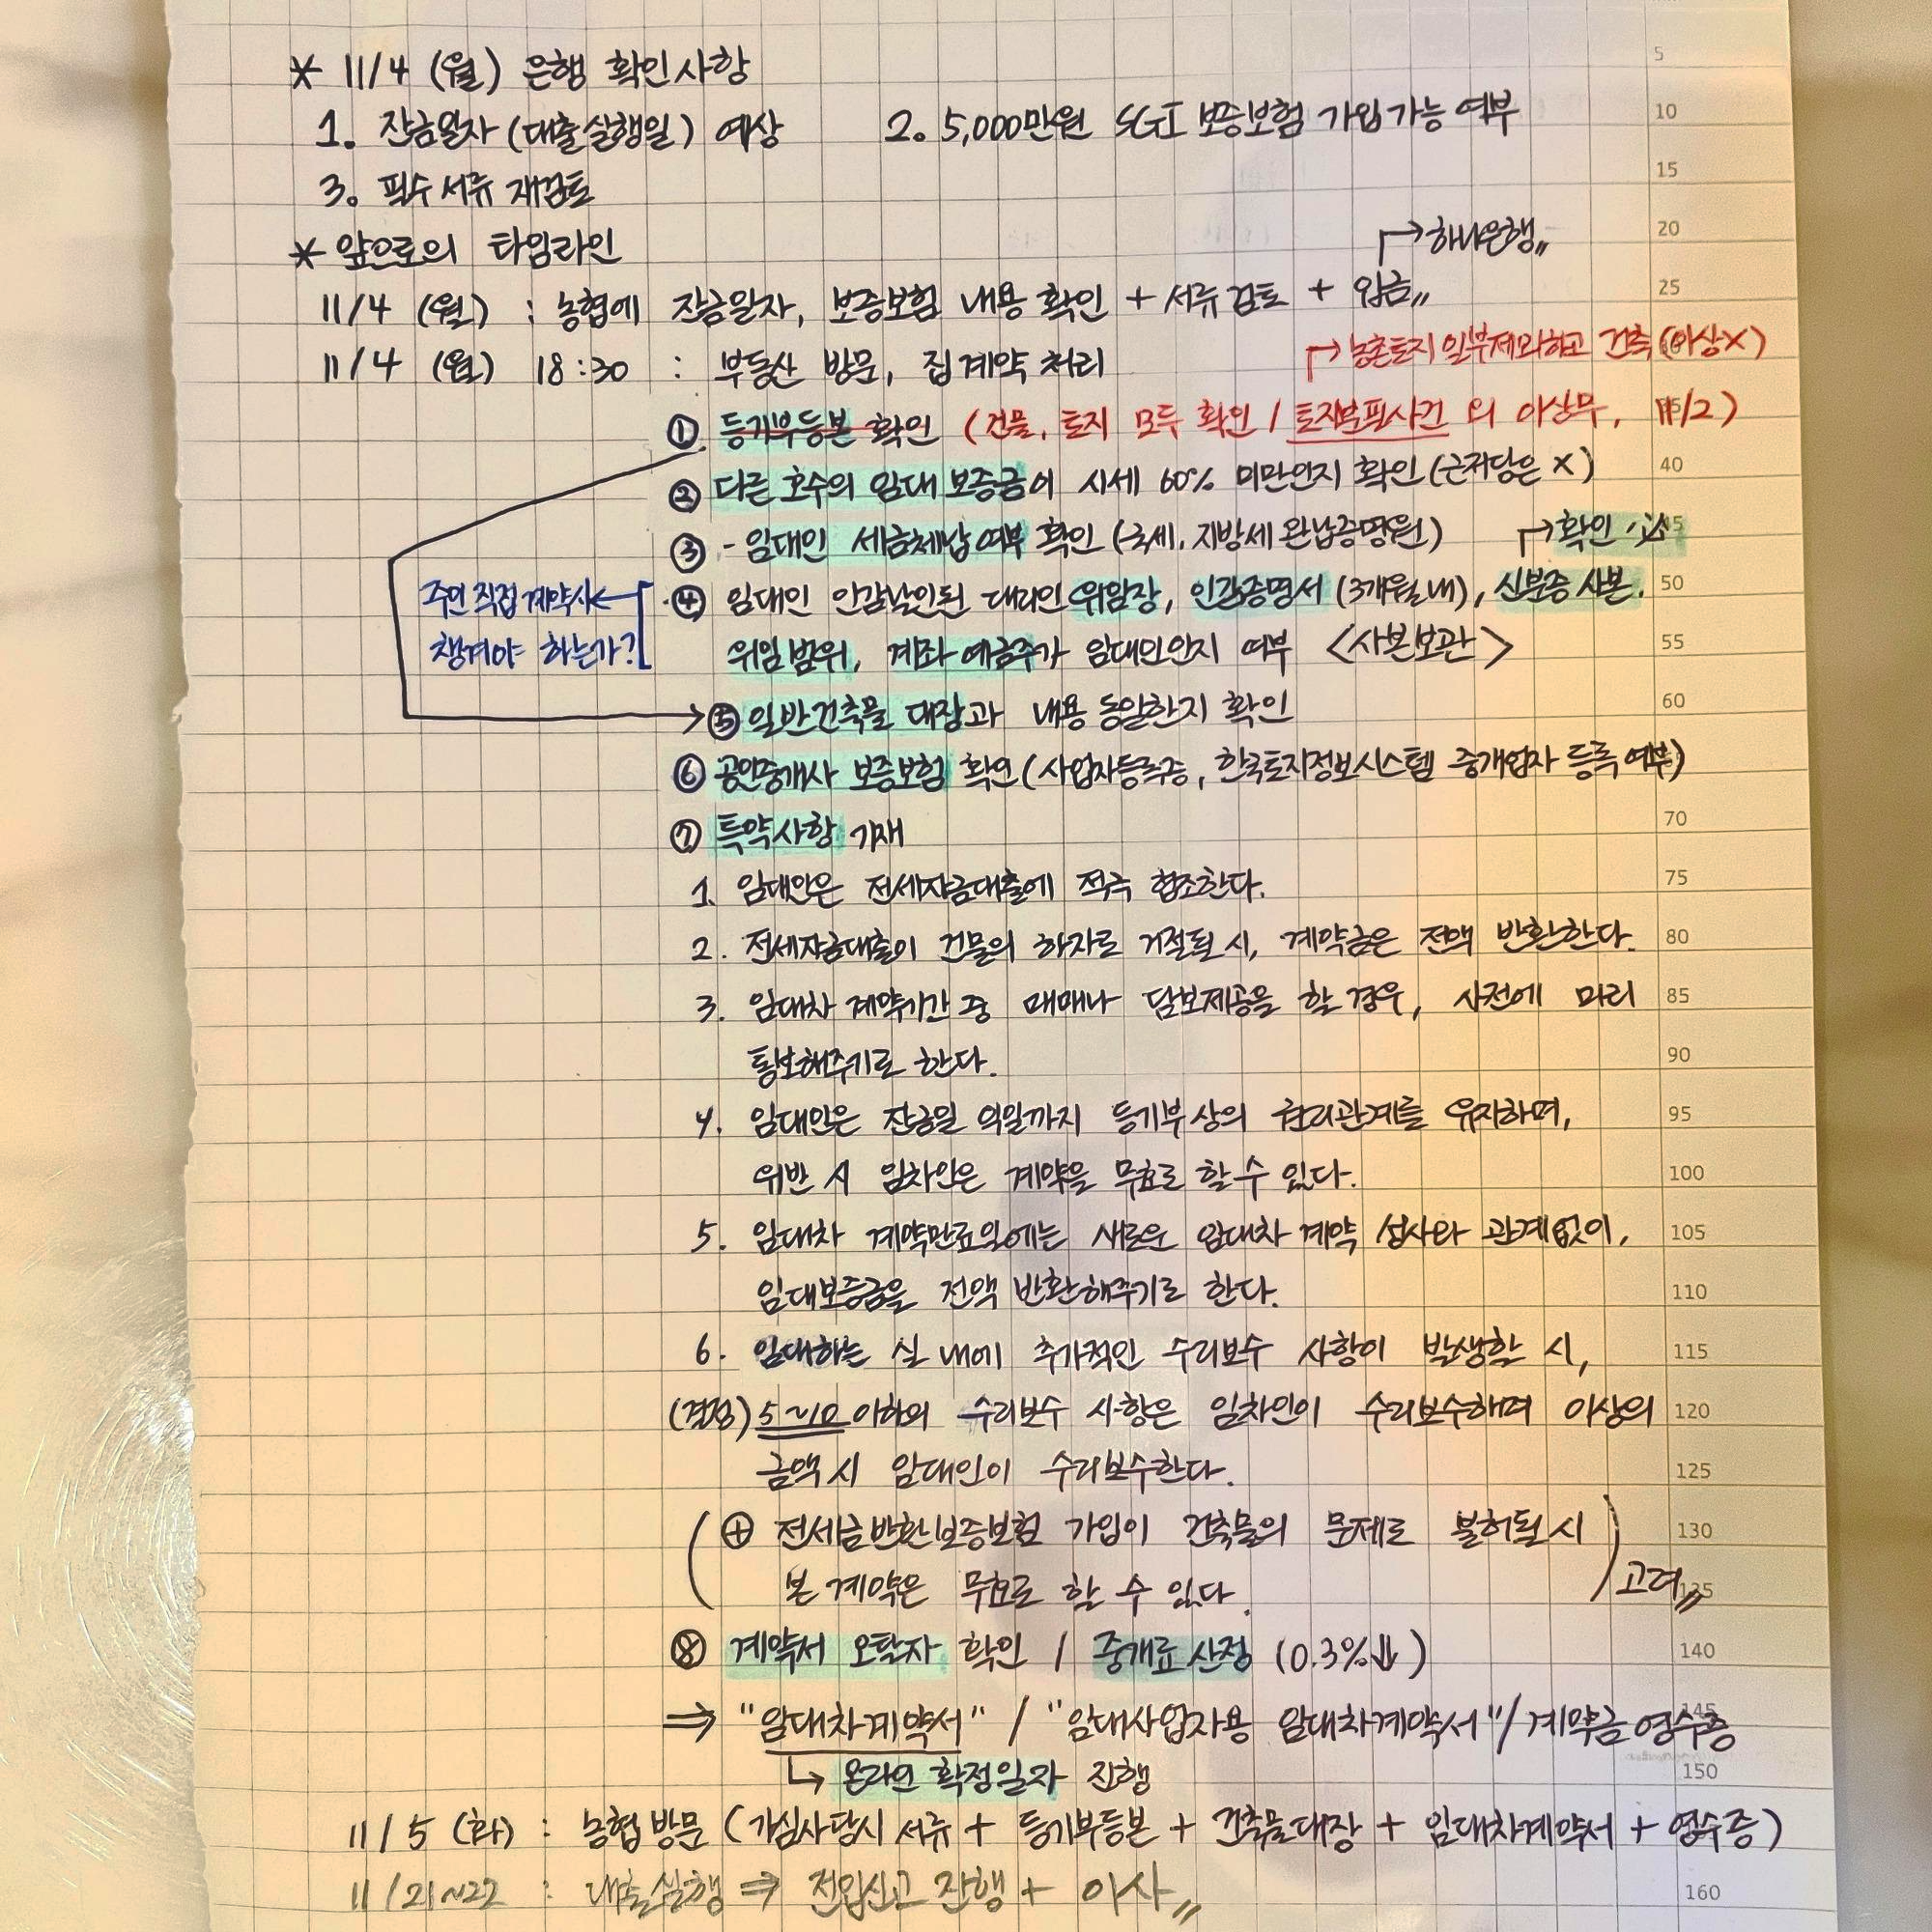 * 11/4 (월) 은행 확인사항
1. 잔금일자 (대출실행일) 예상 2. 5,000만원 SGI 보증보험 가입가능 여부
3. 필수서류 재검토
* 앞으로의 타임라인
→ 하나은행〃
11/4 (월) : 농협에 잔금일자, 보증보험 내용 확인 + 서류검토 + 입금〃
→ 농촌토지 일부제외하고 건축 (이상X)
11/4 (월) 18:30 : 부동산 방문, 집 계약 처리
① 등기부등본 확인 (건물, 토지 모두 확인 / 토지분필사건 외 이상무, 11/2)
② 다른 호수의 임대 보증금이 시세 60% 미만인지 확인 (근저당은 X)
③ - 임대인 세금체납 여부 확인 (국세, 지방세 완납증명원) → 확인 必
주인 직접 계약시 ← ④ 임대인 인감날인된 대리인 위임장, 인감증명서 (3개월내), 신분증 사본.
챙겨야 하는가? 위임범위, 계좌 예금주가 임대인인지 여부 <사본보관>
→ ⑤ 일반건축물 대장과 내용 동일한지 확인
⑥ 공인중개사 보증보험 확인 (사업자등록증, 한국토지정보시스템 중개업자 등록 여부)
⑦ 특약사항 기재
1. 임대인은 전세자금대출에 적극 협조한다.
2. 전세자금대출이 건물의 하자로 거절될 시, 계약금은 전액 반환한다.
3. 임대차 계약기간 중 매매나 담보제공을 할 경우, 사전에 미리
통보해주기로 한다.
4. 임대인은 잔금일 익일까지 등기부상의 권리관계를 유지하며,
위반 시 임차인은 계약을 무효로 할 수 있다.
5. 임대차 계약만료일에는 새로운 임대차 계약 성사와 관계없이,
임대보증금을 전액 반환해주기로 한다.
6. 임대하는 실 내에 추가적인 수리보수 사항이 발생할 시,
(결정) 5~10 이하의 수리보수 사항은 임차인이 수리보수하며 이상의
금액 시 임대인이 수리보수한다.
(⊕ 전세금반환보증보험 가입이 건축물의 문제로 불허될 시
본 계약은 무효로 할 수 있다.) 고려〃
⑧ 계약서 오탈자 확인 / 중개료 산정 (0.3%⇓)
⇒ "임대차계약서" / "임대사업자용 임대차계약서" / 계약금 영수증
↳ 온라인 확정일자 진행
11/5 (화) : 농협 방문 (가심사당시 서류 + 등기부등본 + 건축물대장 + 임대차계약서 + 영수증)
11/21~22 : 대출실행 ⇒ 전입신고 진행 + 이사〃
5
10
15
20
25
40
50
55
60
70
75
80
85
90
95
100
105
110
115
120
125
130
135
140
145
150
160